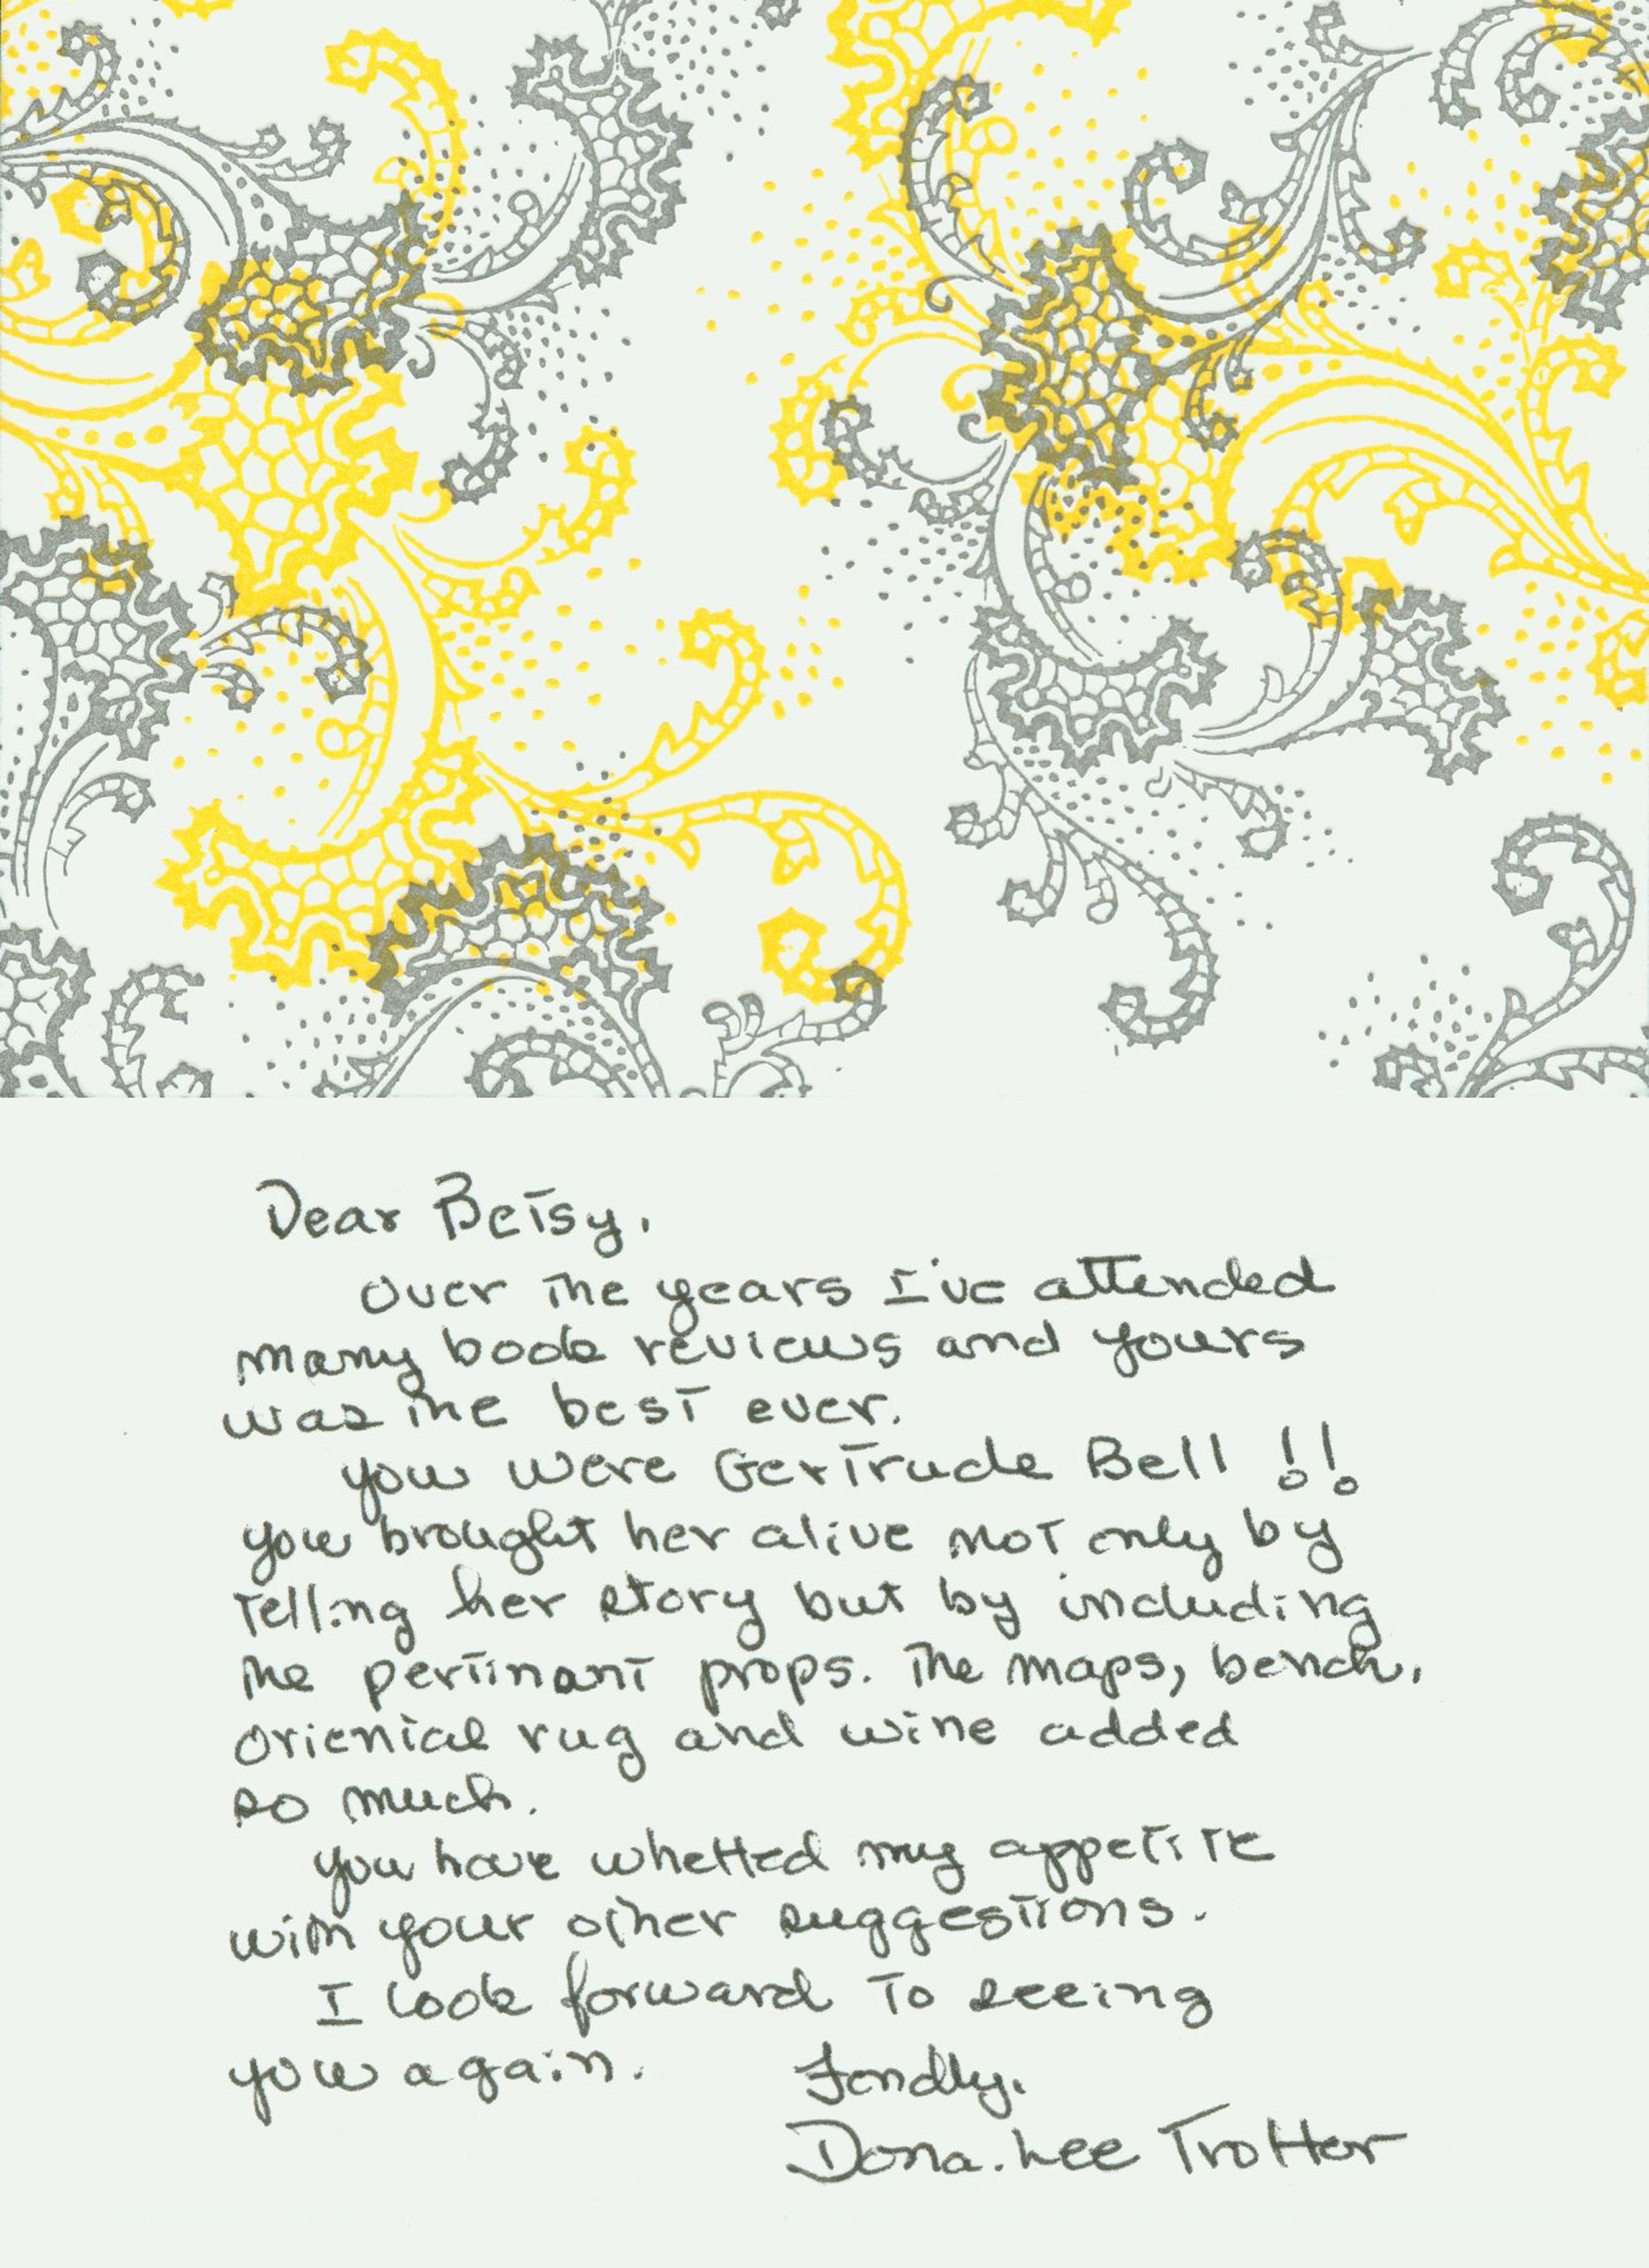 Dear Betsy,
Over the years I've attended
many book reviews and yours
was the best ever.
You were Gertrude Bell !!
You brought her alive not only by
telling her story but by including
the pertinant props. The maps, bench,
oriental rug and wine added
so much.
You have whetted my appetite
with your other suggestions.
I look forward to seeing
you again.
Fondly,
Dona-Lee Trotter